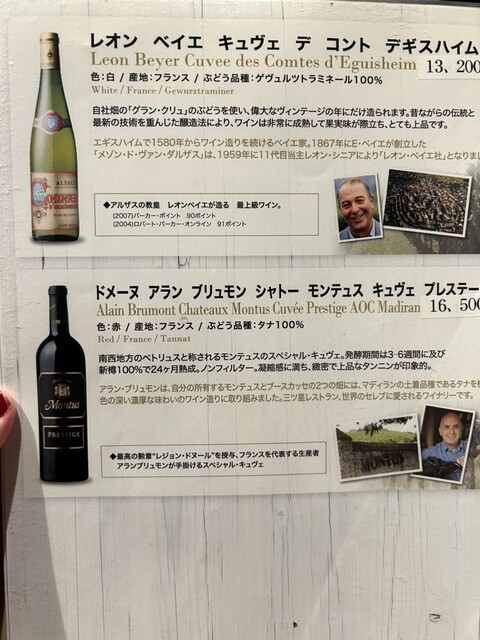 レオン ベイエ キュヴェ デ コント デギスハイム
Leon Beyer Cuvee des Comtes d'Eguisheim 13、200
色：白 / 産地：フランス / ぶどう品種：ゲヴュルツトラミネール100%
White / France / Gewurztraminer
自社畑の「グラン・クリュ」のぶどうを使い、偉大なヴィンテージの年にだけ造られます。昔ながらの伝統と
最新の技術を重んじた醸造法により、ワインは非常に成熟して果実味が際立ち、とても上品です。
エギスハイムで1580年からワイン造りを続けるベイエ家。1867年にE・ベイエが創立した
「メゾン・ド・ヴァン・ダルザス」は、1959年に11代目当主レオン・シニアにより「レオン・ベイエ社」となりま
◆アルザスの教皇 レオンベイエが造る 最上級ワイン。
(2007)パーカー・ポイント 90ポイント
(2004)ロバート・パーカー・オンライン 91ポイント
ALSACE
ドメーヌ アラン ブリュモン シャトー モンテュス キュヴェ プレステー
Alain Brumont Chateaux Montus Cuvée Prestige AOC Madiran 16、50
色：赤 / 産地：フランス / ぶどう品種：タナ100%
Red / France / Tannat
南西地方のペトリュスと称されるモンテュスのスペシャル・キュヴェ。発酵期間は3-6週間に及び
新樽100%で24ヶ月熟成。ノンフィルター。凝縮感に満ち、緻密で上品なタンニンが印象的。
アラン・ブリュモンは、自分の所有するモンテュスとブースカッセの2つの畑には、マディランの土着品種であるタナを
色の深い濃厚な味わいのワイン造りに取り組みました。三ツ星レストラン、世界のセレブに愛されるワイナリーです。
◆最高の勲章"レジョン・ドヌール"を授与、フランスを代表する生産者
アランブリュモンが手掛けるスペシャル・キュヴェ
Montus
PRESTIGE
MONTUS